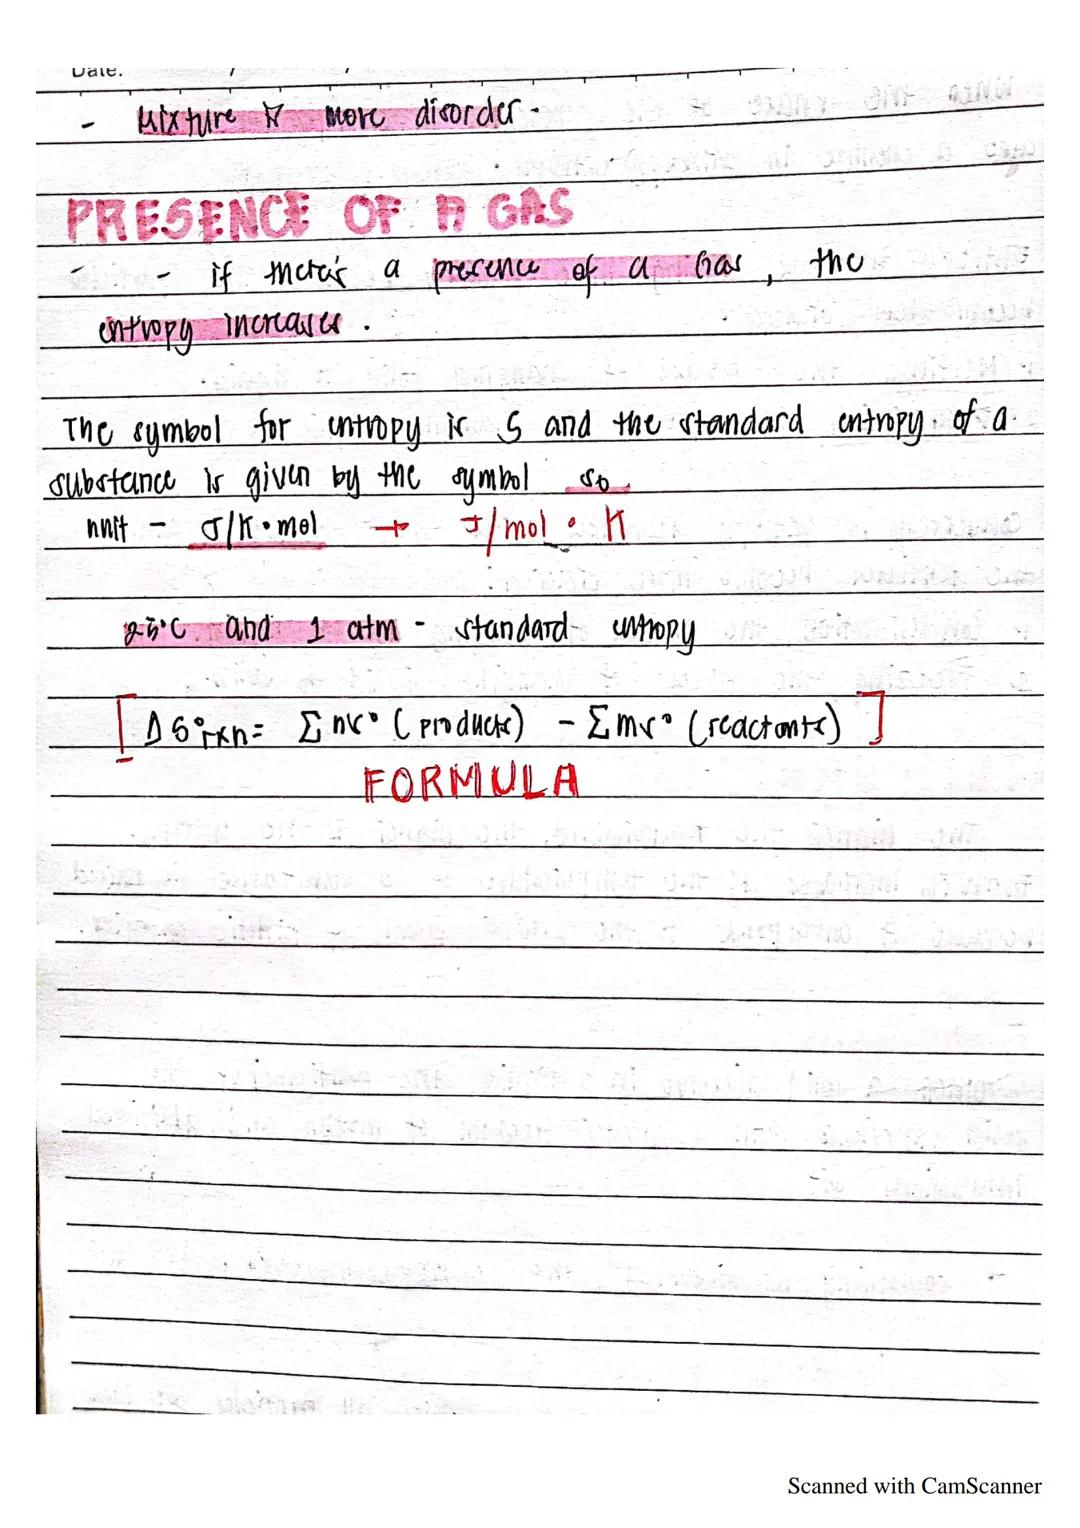 Date:
- Mixture ☆ more disorder.
PRESENCE OF A GAS
- - if there's a presence of a Gas, the
entropy increases.
The symbol for entropy is S and the standard entropy of a
substance is given by the symbol so
unit - J/K•mol → J/mol • K
25°C and 1 atm - standard entropy
[ΔS°rxn= Σns° (products) - Σms° (reactants)]
FORMULA
Scanned with CamScanner